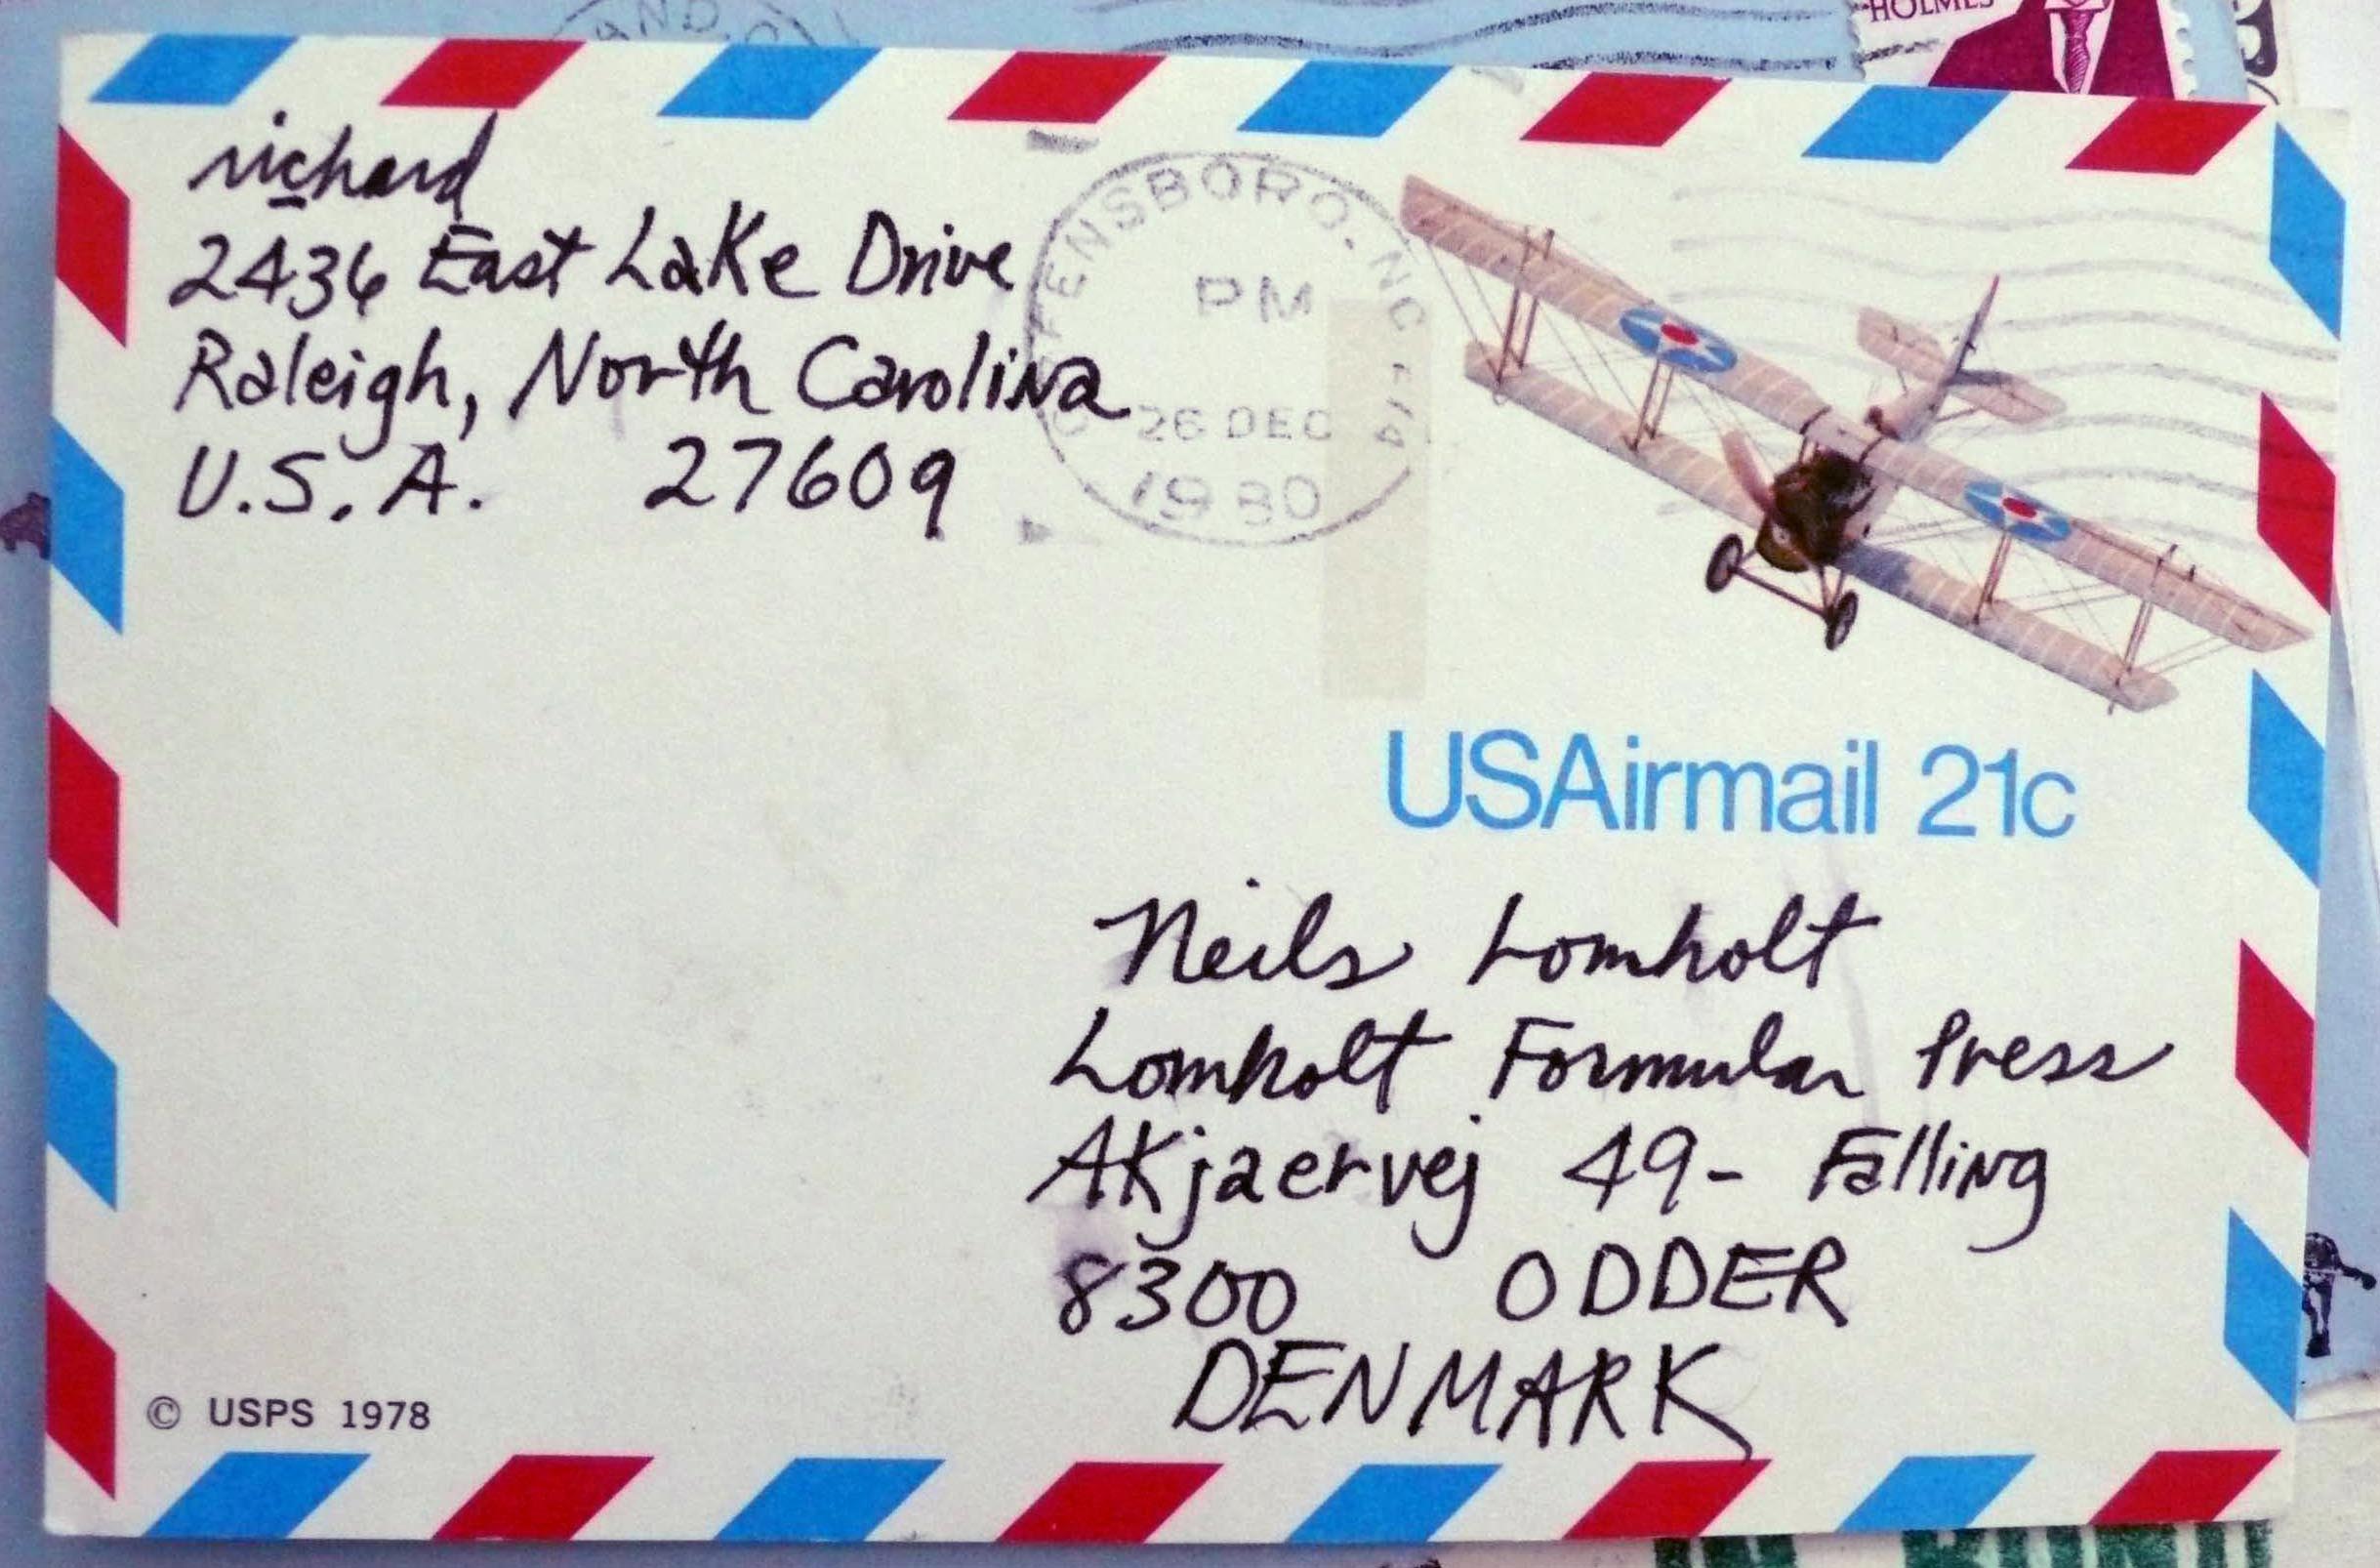 HOLMES
richard
2436 East Lake Drive
Raleigh, North Carolina
U.S.A. 27609
GREENSBORO. NC
PM
26 DEC
1980
USAirmail 21c
Neils Lomholt
Lomholt Formular Press
AKjaervej 49- Falling
8300 ODDER
DENMARK
© USPS 1978